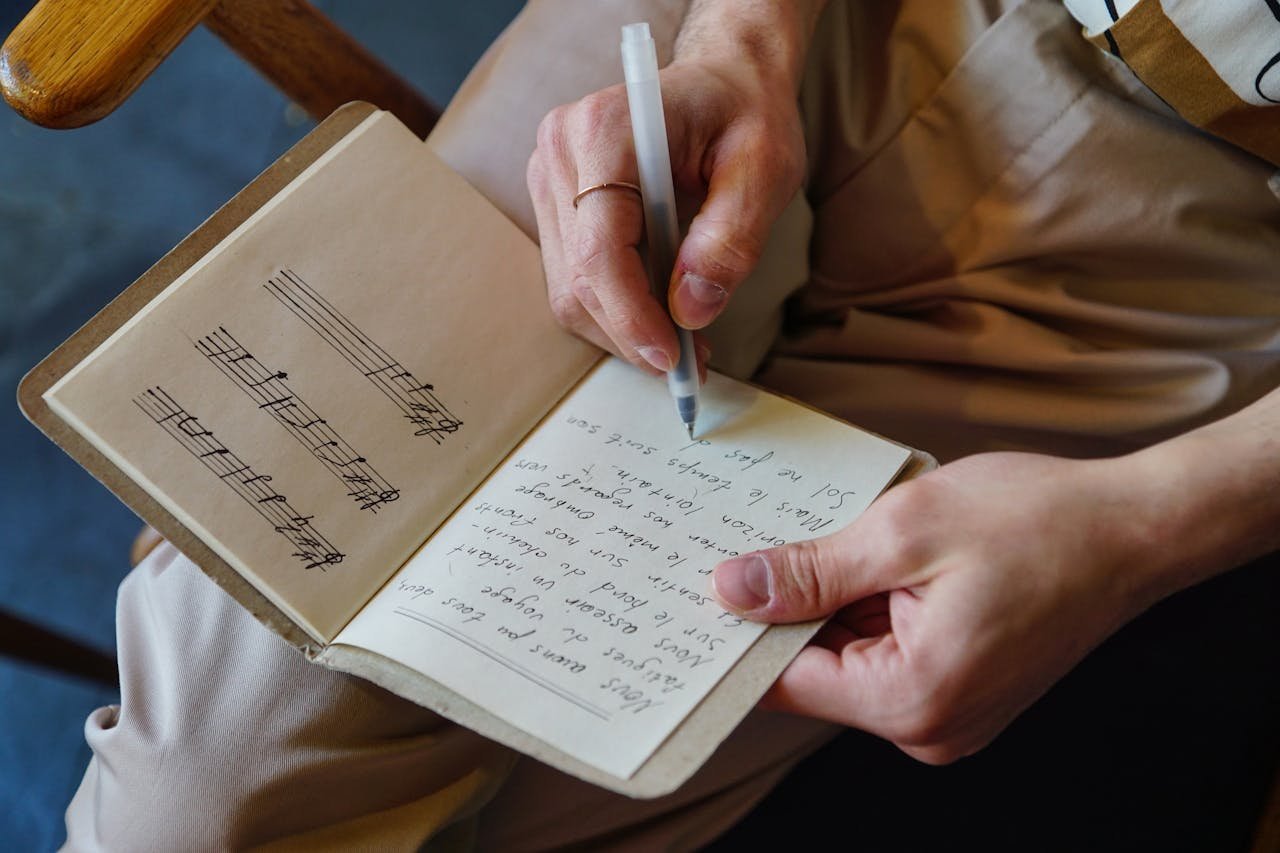 Nous avons pu tous deus,
fatigues du voyage
Nous asseoir un instant
sur le bord du chemin-
sentir sur nos fronts
le même Ombrage
nos regards vers
orizon lointain.
Mais le temps suit son
Sol ne pas d